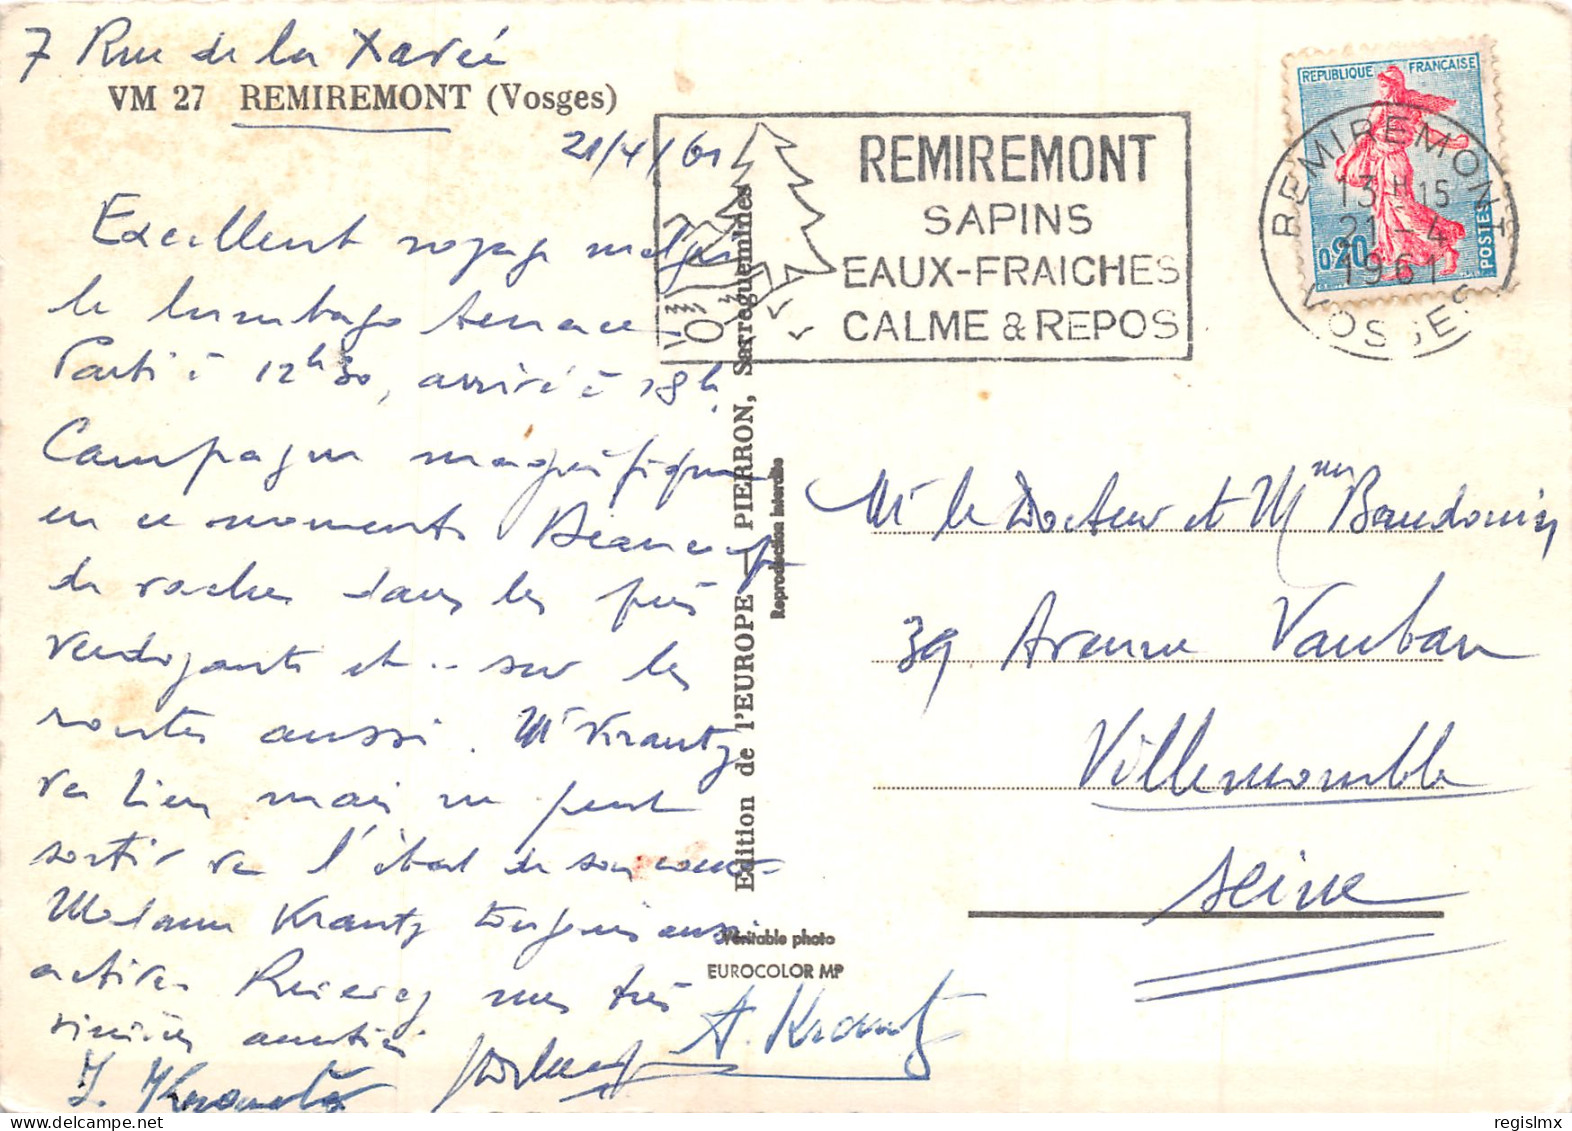 7 Rue de la Xavée
VM 27 REMIREMONT (Vosges)
21/4/61
Excellent voyage malgré
le lumbago tenace
Parti à 12h30, arrivé à 18h.
Campagne magnifique
en ce moment. Beaucoup
de vaches dans les prés
verdoyants et .. sur les
routes aussi. Mr Krantz
va bien mais ne peut
sortir vu l'état de son
Madame Krantz toujours aussi
active. Recevez mes très
sincères amitiés
A. Krantz
J. Krantz
Edition de l'EUROPE — PIERRON, Sarreguemines
Reproduction interdite
Véritable photo
EUROCOLOR MP
REMIREMONT
SAPINS
EAUX-FRAICHES
CALME & REPOS
REPUBLIQUE FRANÇAISE
0,20
POSTES
REMIREMONT
13H15
21-4
1961
VOSGES
Mr le Docteur et Mme Baudouin
39 Avenue Vauban
Villemomble
Seine
regislmx